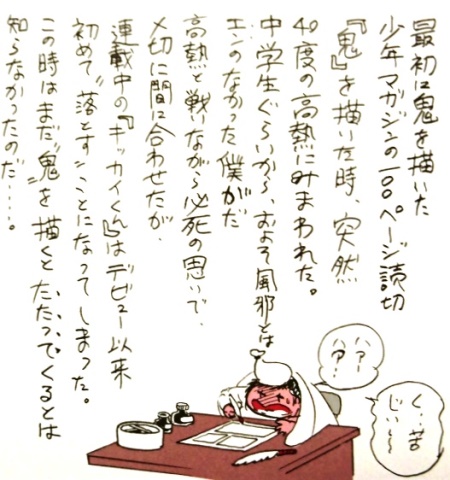 最初に鬼を描いた
少年マガジンの100ページ読切
『鬼』を描いた時、突然
40度の高熱にみまわれた。
中学生ぐらいから、およそ風邪とは
エンのなかった僕がだ
高熱と戦いながら必死の思いで、
〆切に間に合わせたが、
連載中の『キッカイくん』はデビュー以来
初めて“落とす”ことになってしまった。
この時はまだ“鬼”を描くとたたってくるとは
知らなかったのだ……。
ハァー
ハァー
く、苦
じい〜〜